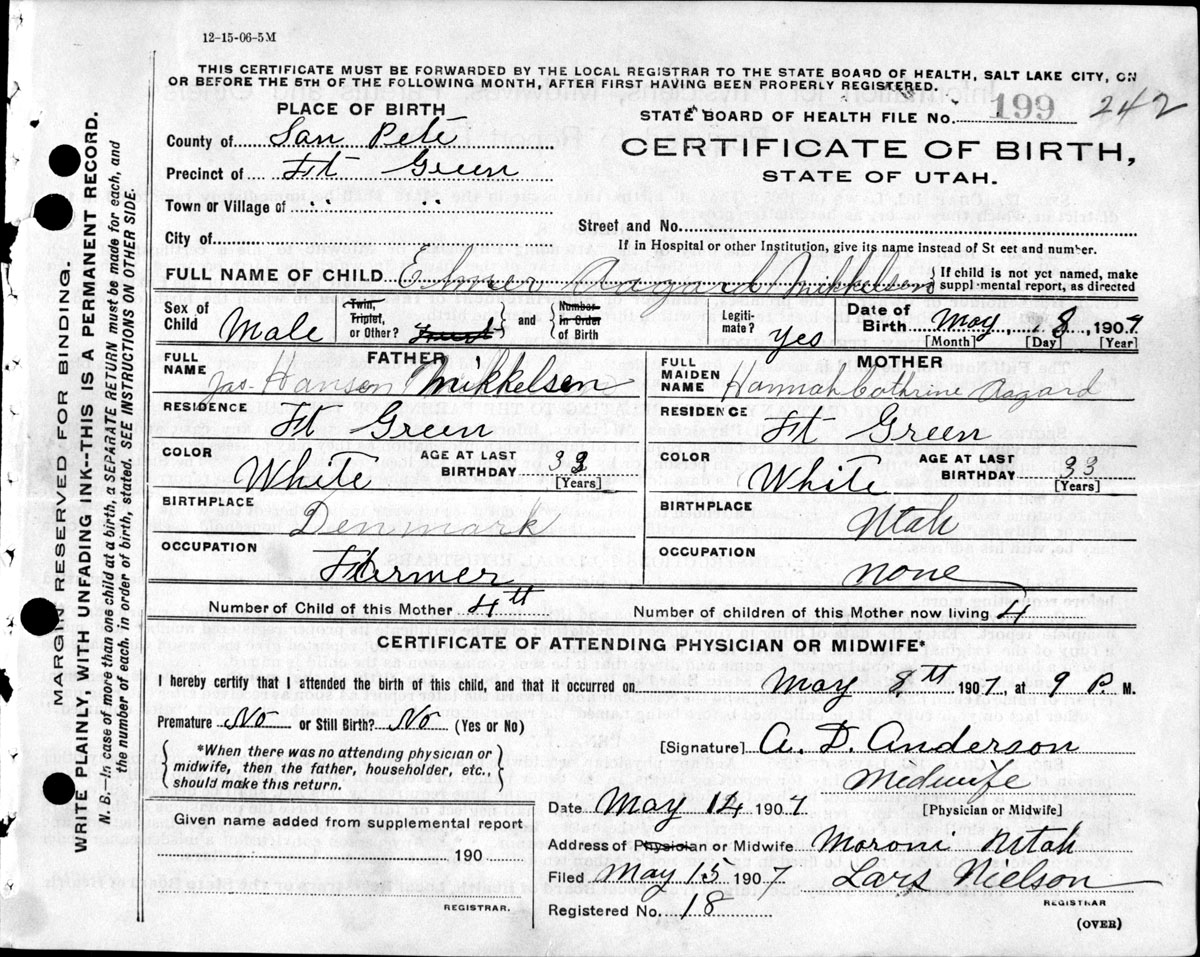 12-15-06-5M
THIS CERTIFICATE MUST BE FORWARDED BY THE LOCAL REGISTRAR TO THE STATE BOARD OF HEALTH, SALT LAKE CITY, ON
OR BEFORE THE 5TH OF THE FOLLOWING MONTH, AFTER FIRST HAVING BEEN PROPERLY REGISTERED.
PLACE OF BIRTH
STATE BOARD OF HEALTH FILE No. 199 242
County of San Pete
CERTIFICATE OF BIRTH,
Precinct of Ft Green
STATE OF UTAH.
Town or Village of " "
Street and No.
City of
If in Hospital or other Institution, give its name instead of St eet and number.
FULL NAME OF CHILD Elmer Aagard Mikkelsen { If child is not yet named, make
suppl mental report, as directed
Sex of Child Male Twin, Triplet, or Other? and { Number in Order of Birth Legiti-mate? Yes Date of Birth May 8, 1907
[Month] [Day] [Year]
FATHER
FULL NAME Jas. Hansen Mikkelsen
MOTHER
FULL MAIDEN NAME Hannah Cathrine Aagard
RESIDENCE Ft Green
RESIDENCE Ft Green
COLOR White AGE AT LAST BIRTHDAY 33 [Years]
COLOR White AGE AT LAST BIRTHDAY 33 [Years]
BIRTHPLACE Denmark
BIRTHPLACE Utah
OCCUPATION Farmer
OCCUPATION none
Number of Child of this Mother 4th Number of children of this Mother now living 4
CERTIFICATE OF ATTENDING PHYSICIAN OR MIDWIFE*
I hereby certify that I attended the birth of this child, and that it occurred on May 8th 1907, at 9 P. M.
Premature No or Still Birth? No (Yes or No)
{ *When there was no attending physician or
midwife, then the father, householder, etc.,
should make this return. }
[Signature] A. D. Anderson
Medwife
[Physician or Midwife]
Date May 14 1907
Given name added from supplemental report
190
REGISTRAR.
Address of Physician or Midwife Moroni Utah
Filed May 15 1907 Lars Nielson
REGISTRAR
Registered No. 18
(OVER)
MARGIN RESERVED FOR BINDING.
WRITE PLAINLY, WITH UNFADING INK--THIS IS A PERMANENT RECORD.
N. B.—In case of more than one child at a birth, a SEPARATE RETURN must be made for each, and
the number of each, in order of birth, stated. SEE INSTRUCTIONS ON OTHER SIDE.